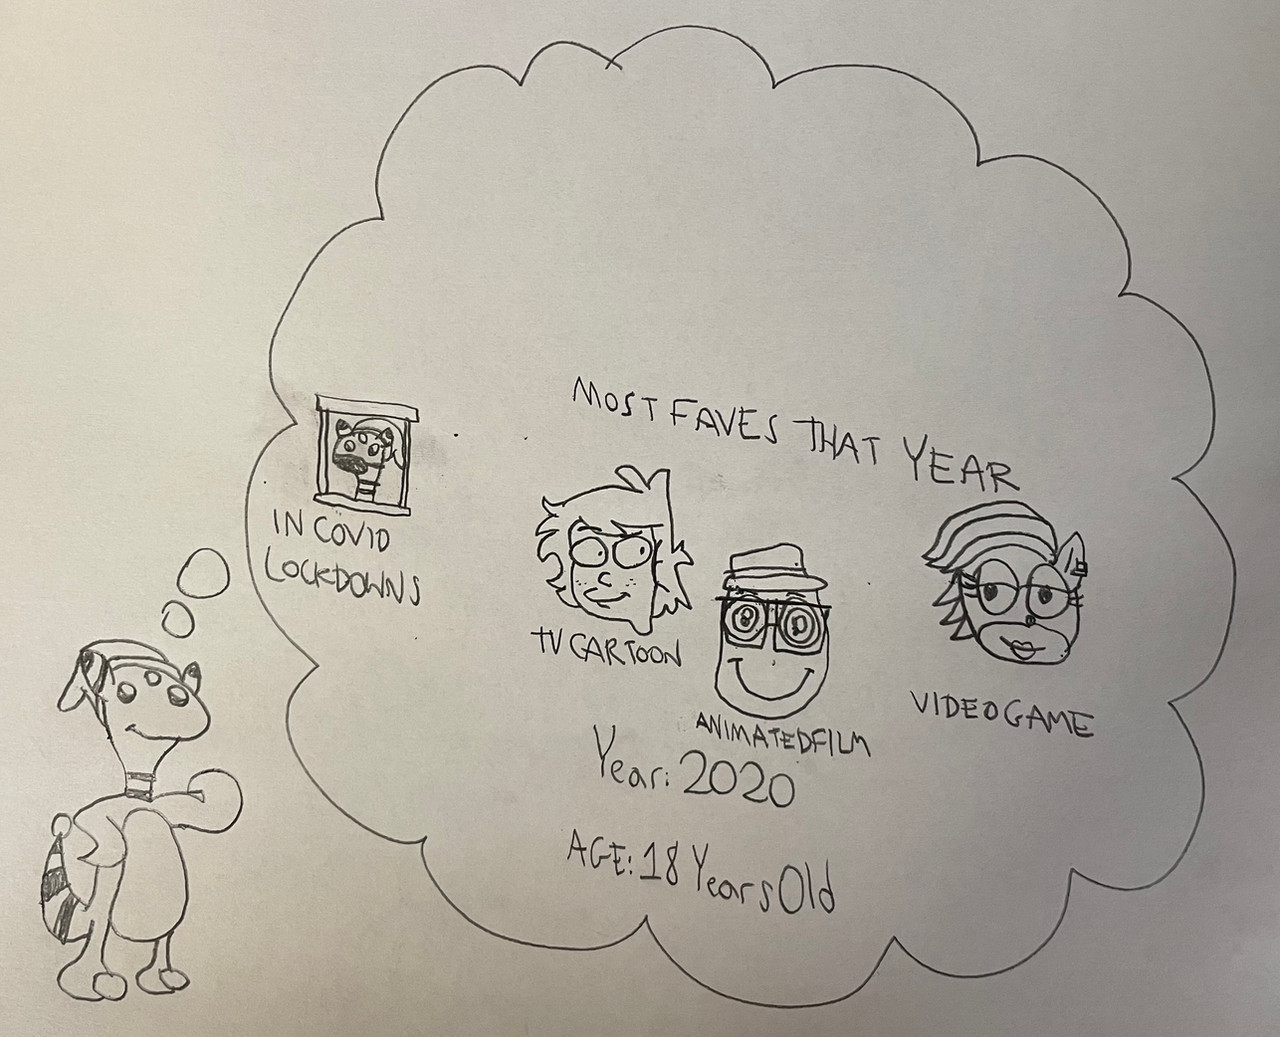 MOST FAVES THAT YEAR
IN COVID
LOCKDOWNS
TV CARTOON
ANIMATED FILM
VIDEO GAME
Year: 2020
AGE: 18 Years Old